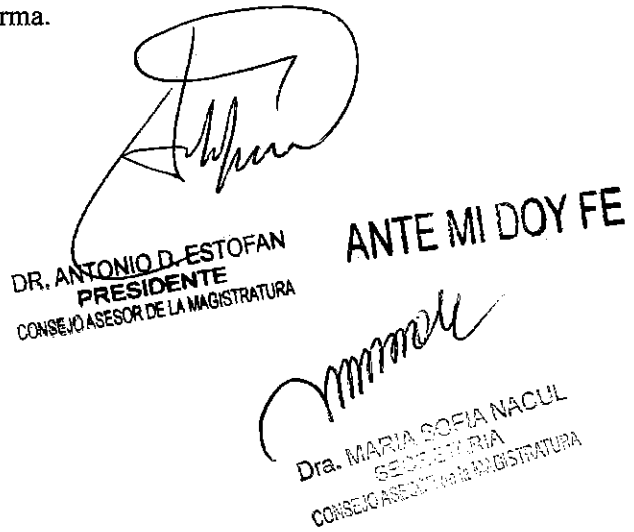 rma.
DR. ANTONIO D. ESTOFAN
PRESIDENTE
CONSEJO ASESOR DE LA MAGISTRATURA
ANTE MI DOY FE
Dra. MARIA SOFIA NACUL
SECRETARIA
CONSEJO ASESOR de la MAGISTRATURA